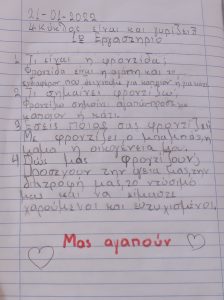 21-01-2022
4 κύκλος είναι και γυρίζει
1ο Εργαστήριο
1. Τι είναι η φροντίδα;
Φροντίδα είναι η αγάπη και το
ενδιαφέρον που για κάποιον ή για κάτι
2. Τι σημαίνει φροντίζω;
Φροντίζω σημαίνει αγαπώ-προσέχω
κάποιον ή κάτι.
3. Εσείς ποιος σας φροντίζει;
Με φροντίζει ο μπαμπάς, η
μαμά η οικογένειά μου.
4. Πώς μας φροντίζουν;
Προσέχουν την υγεία μας, την
διατροφή μας, το ντύσιμό
μας και να είμαστε
χαρούμενοι και ευτυχισμένοι.
Μας αγαπούν